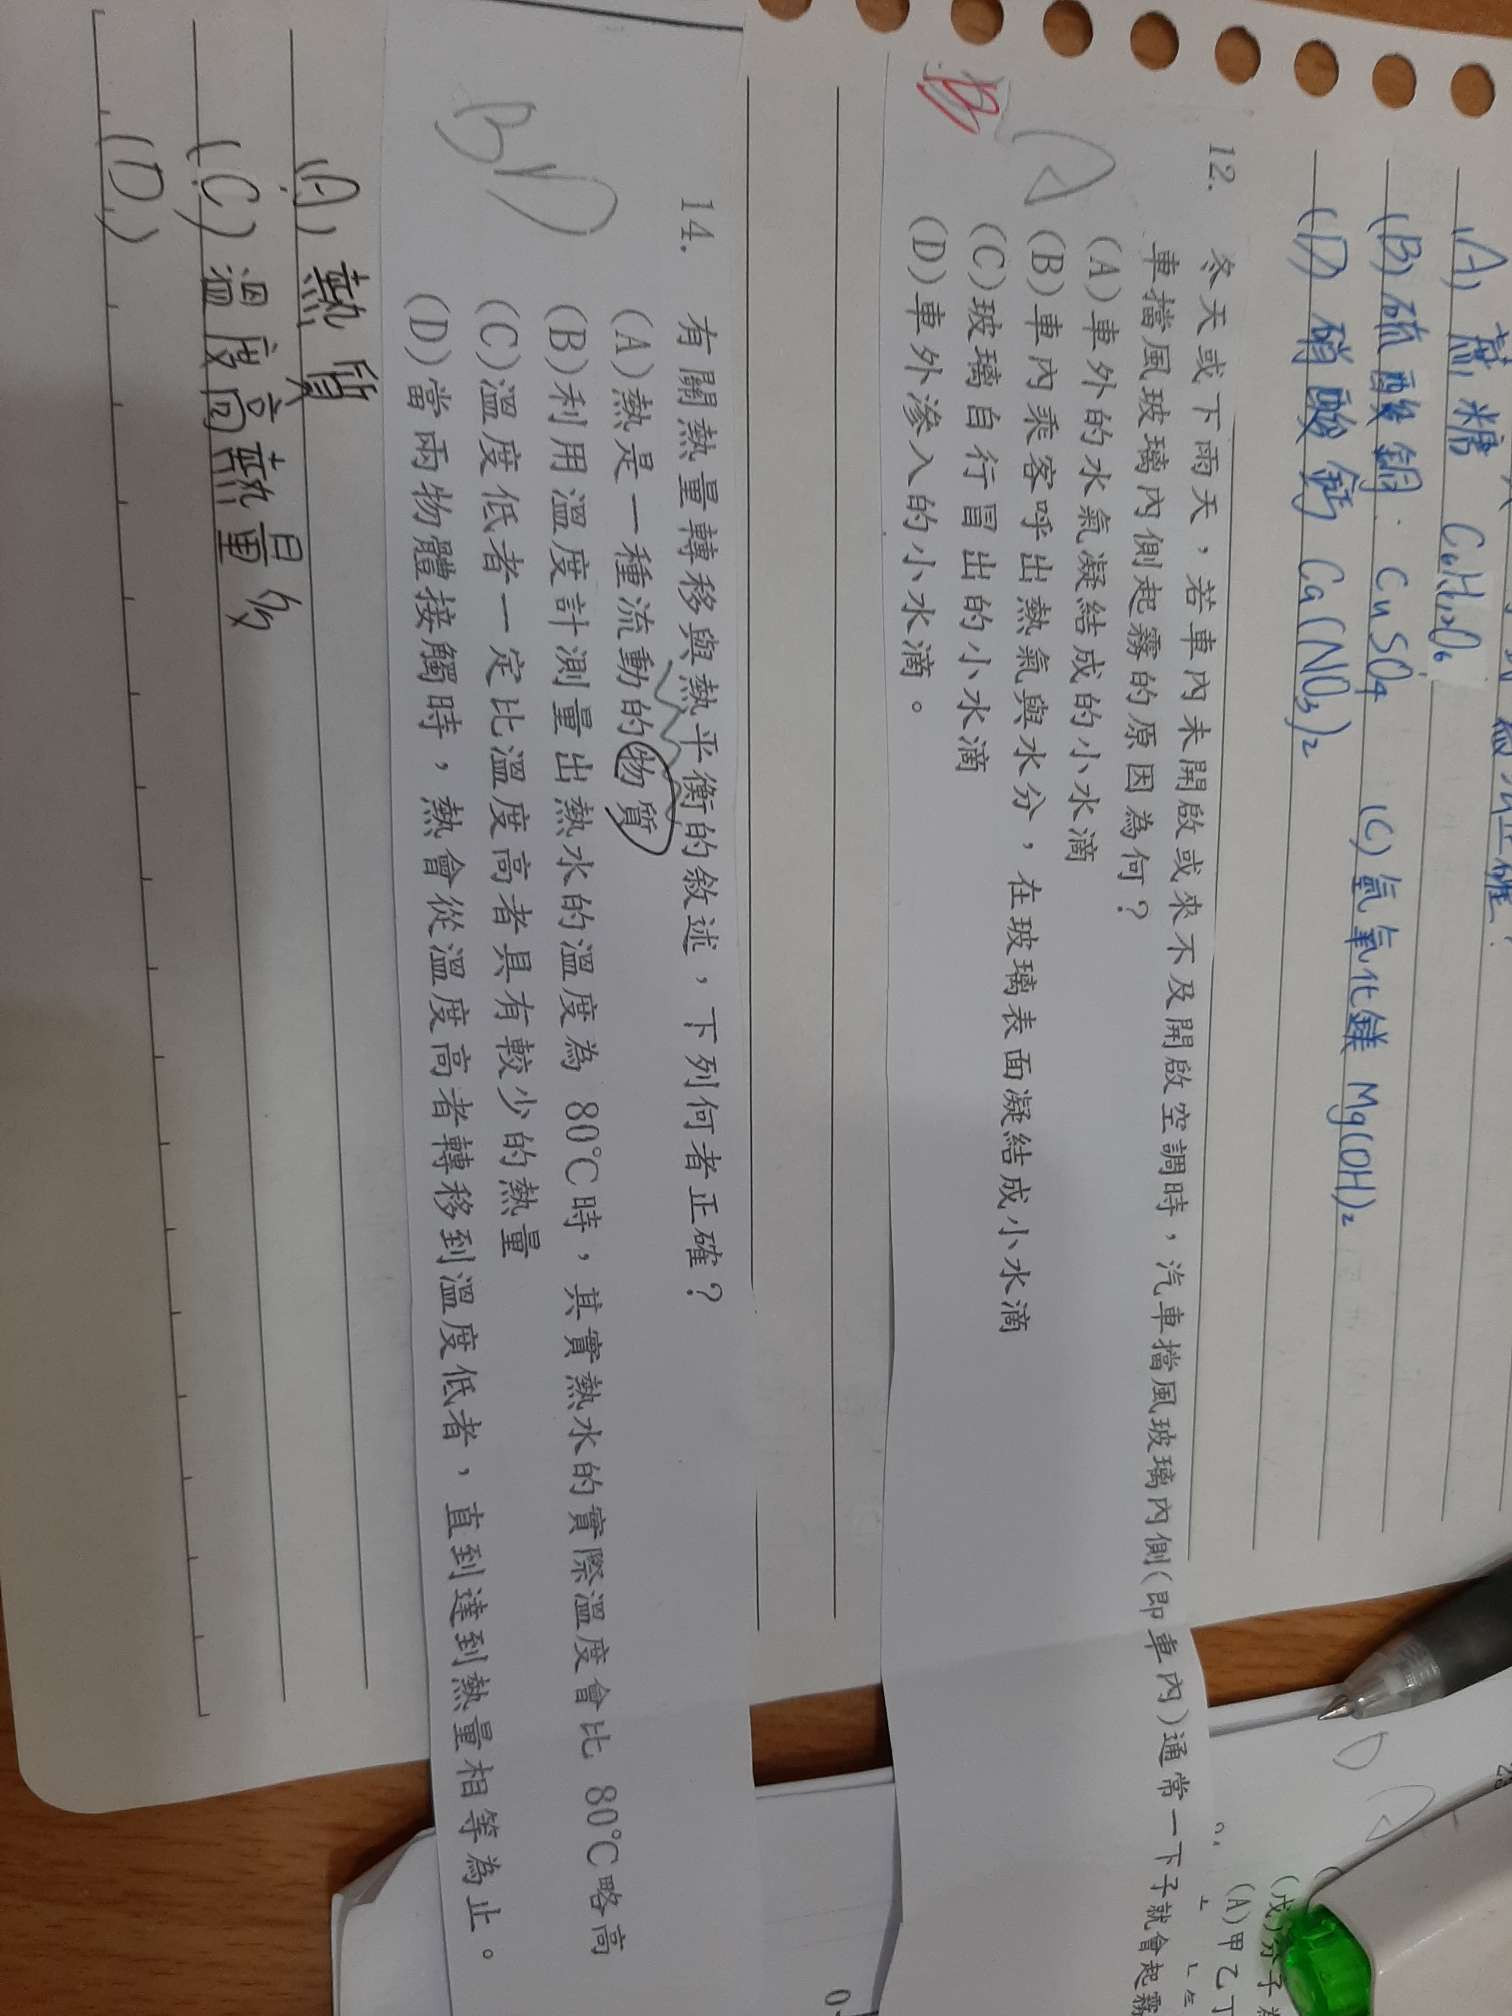 (A) 蔗糖 C6H12O6
(B) 硫酸銅: CuSO4 (C) 氫氧化鎂 Mg(OH)2
(D) 硝酸鈣 Ca(NO3)2
12. 冬天或下雨天，若車內未開啟或來不及開啟空調時，汽車擋風玻璃內側(即車內)通常一下子就會起霧
車擋風玻璃內側起霧的原因為何？
(A)車外的水氣凝結成的小水滴
(B)車內乘客呼出熱氣與水分，在玻璃表面凝結成小水滴
(C)玻璃自行冒出的小水滴
(D)車外滲入的小水滴。
A
B
14. 有關熱量轉移與熱平衡的敘述，下列何者正確？
(A)熱是一種流動的物質
(B)利用溫度計測量出熱水的溫度為 80℃時，其實熱水的實際溫度會比 80℃略高
(C)溫度低者一定比溫度高者具有較少的熱量
(D)當兩物體接觸時，熱會從溫度高者轉移到溫度低者，直到達到熱量相等為止。
BD
(A) 熱質
(C) 溫度高熱量多
(D)
(A)甲乙丁
D